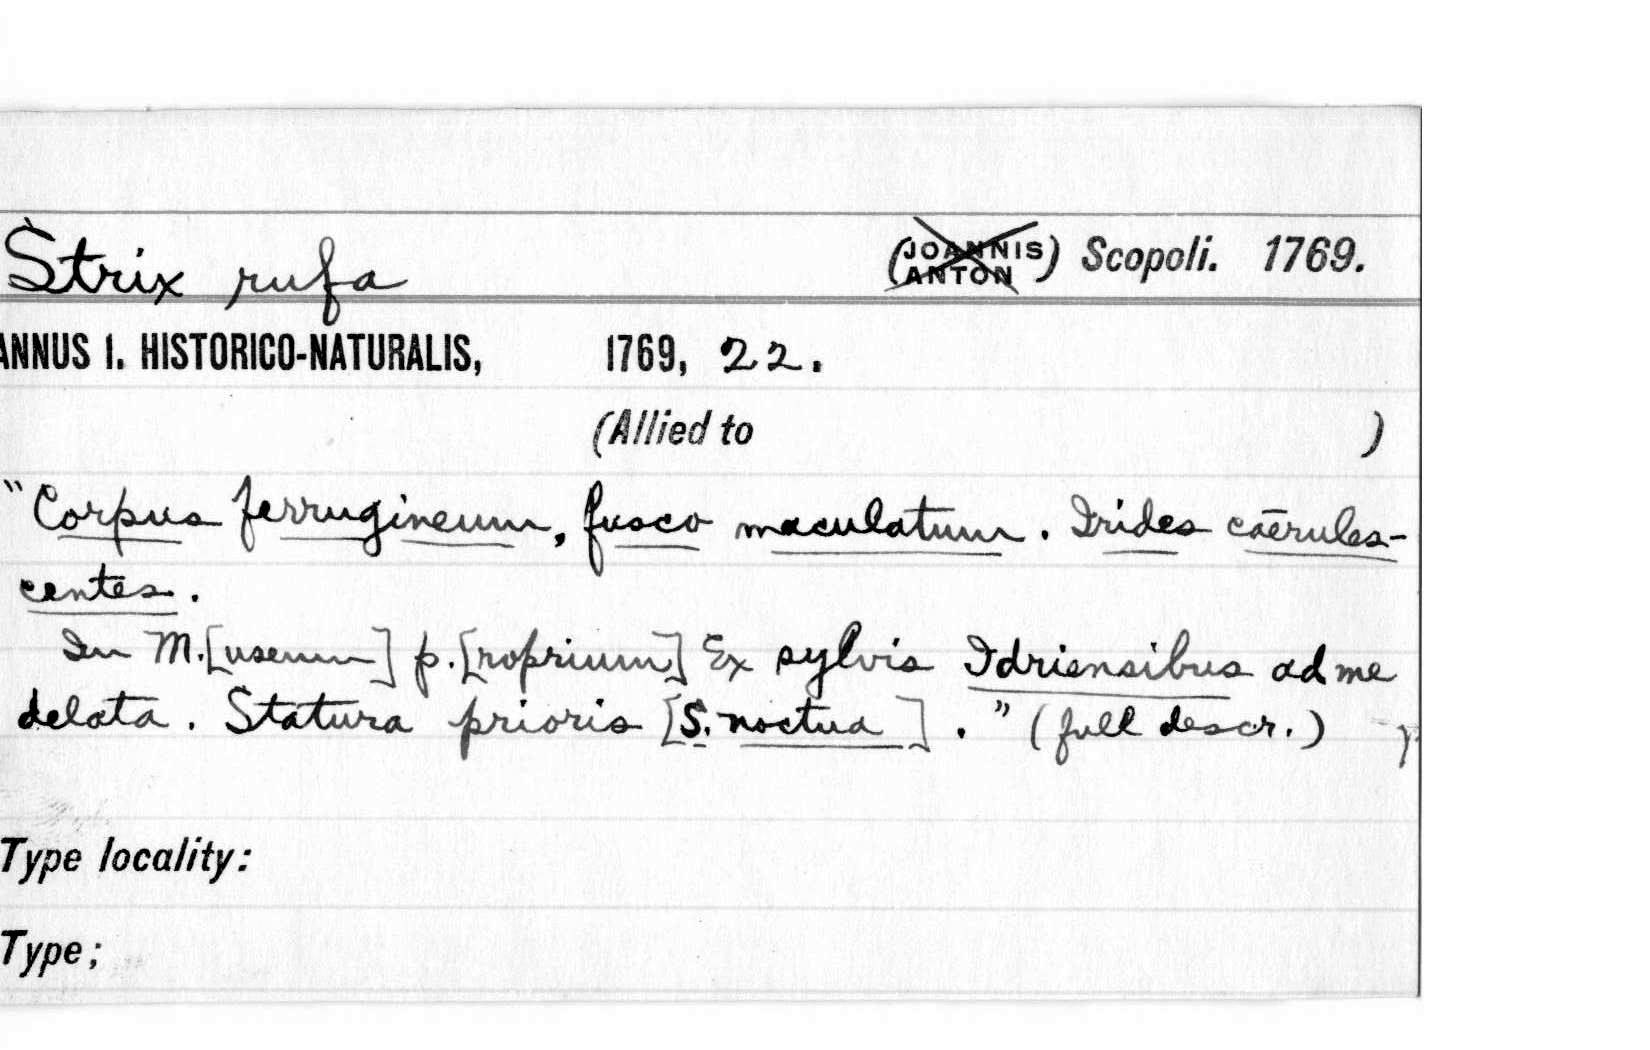 Strix rufa (JOANNIS ANTON) Scopoli. 1769.
ANNUS I. HISTORICO-NATURALIS, 1769, 22.
(Allied to )
"Corpus ferrugineum, fusco maculatum. Irides caerules-
centes.
In M.[useum] p.[roprium] Ex sylvis Idriensibus ad me
delata. Statura prioris [S. noctua]." (full descr.)
Type locality:
Type;